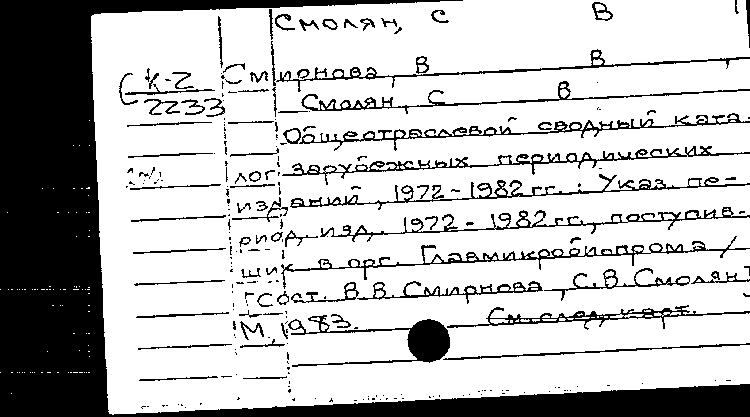 Смолян, С В
Смирнова, В В ,
Смолян, С В
С К-2
2233
Общеотраслевой сводный ката-
лог зарубежных периодических
изданий, 1972-1982 гг. : Указ. пе-
риод. изд. 1972-1982 гг., поступив-
ших в орг. Главмикробиопрома /
[Сост. В.В. Смирнова, С.В. Смолян]
М, 1983. См. след. карт.